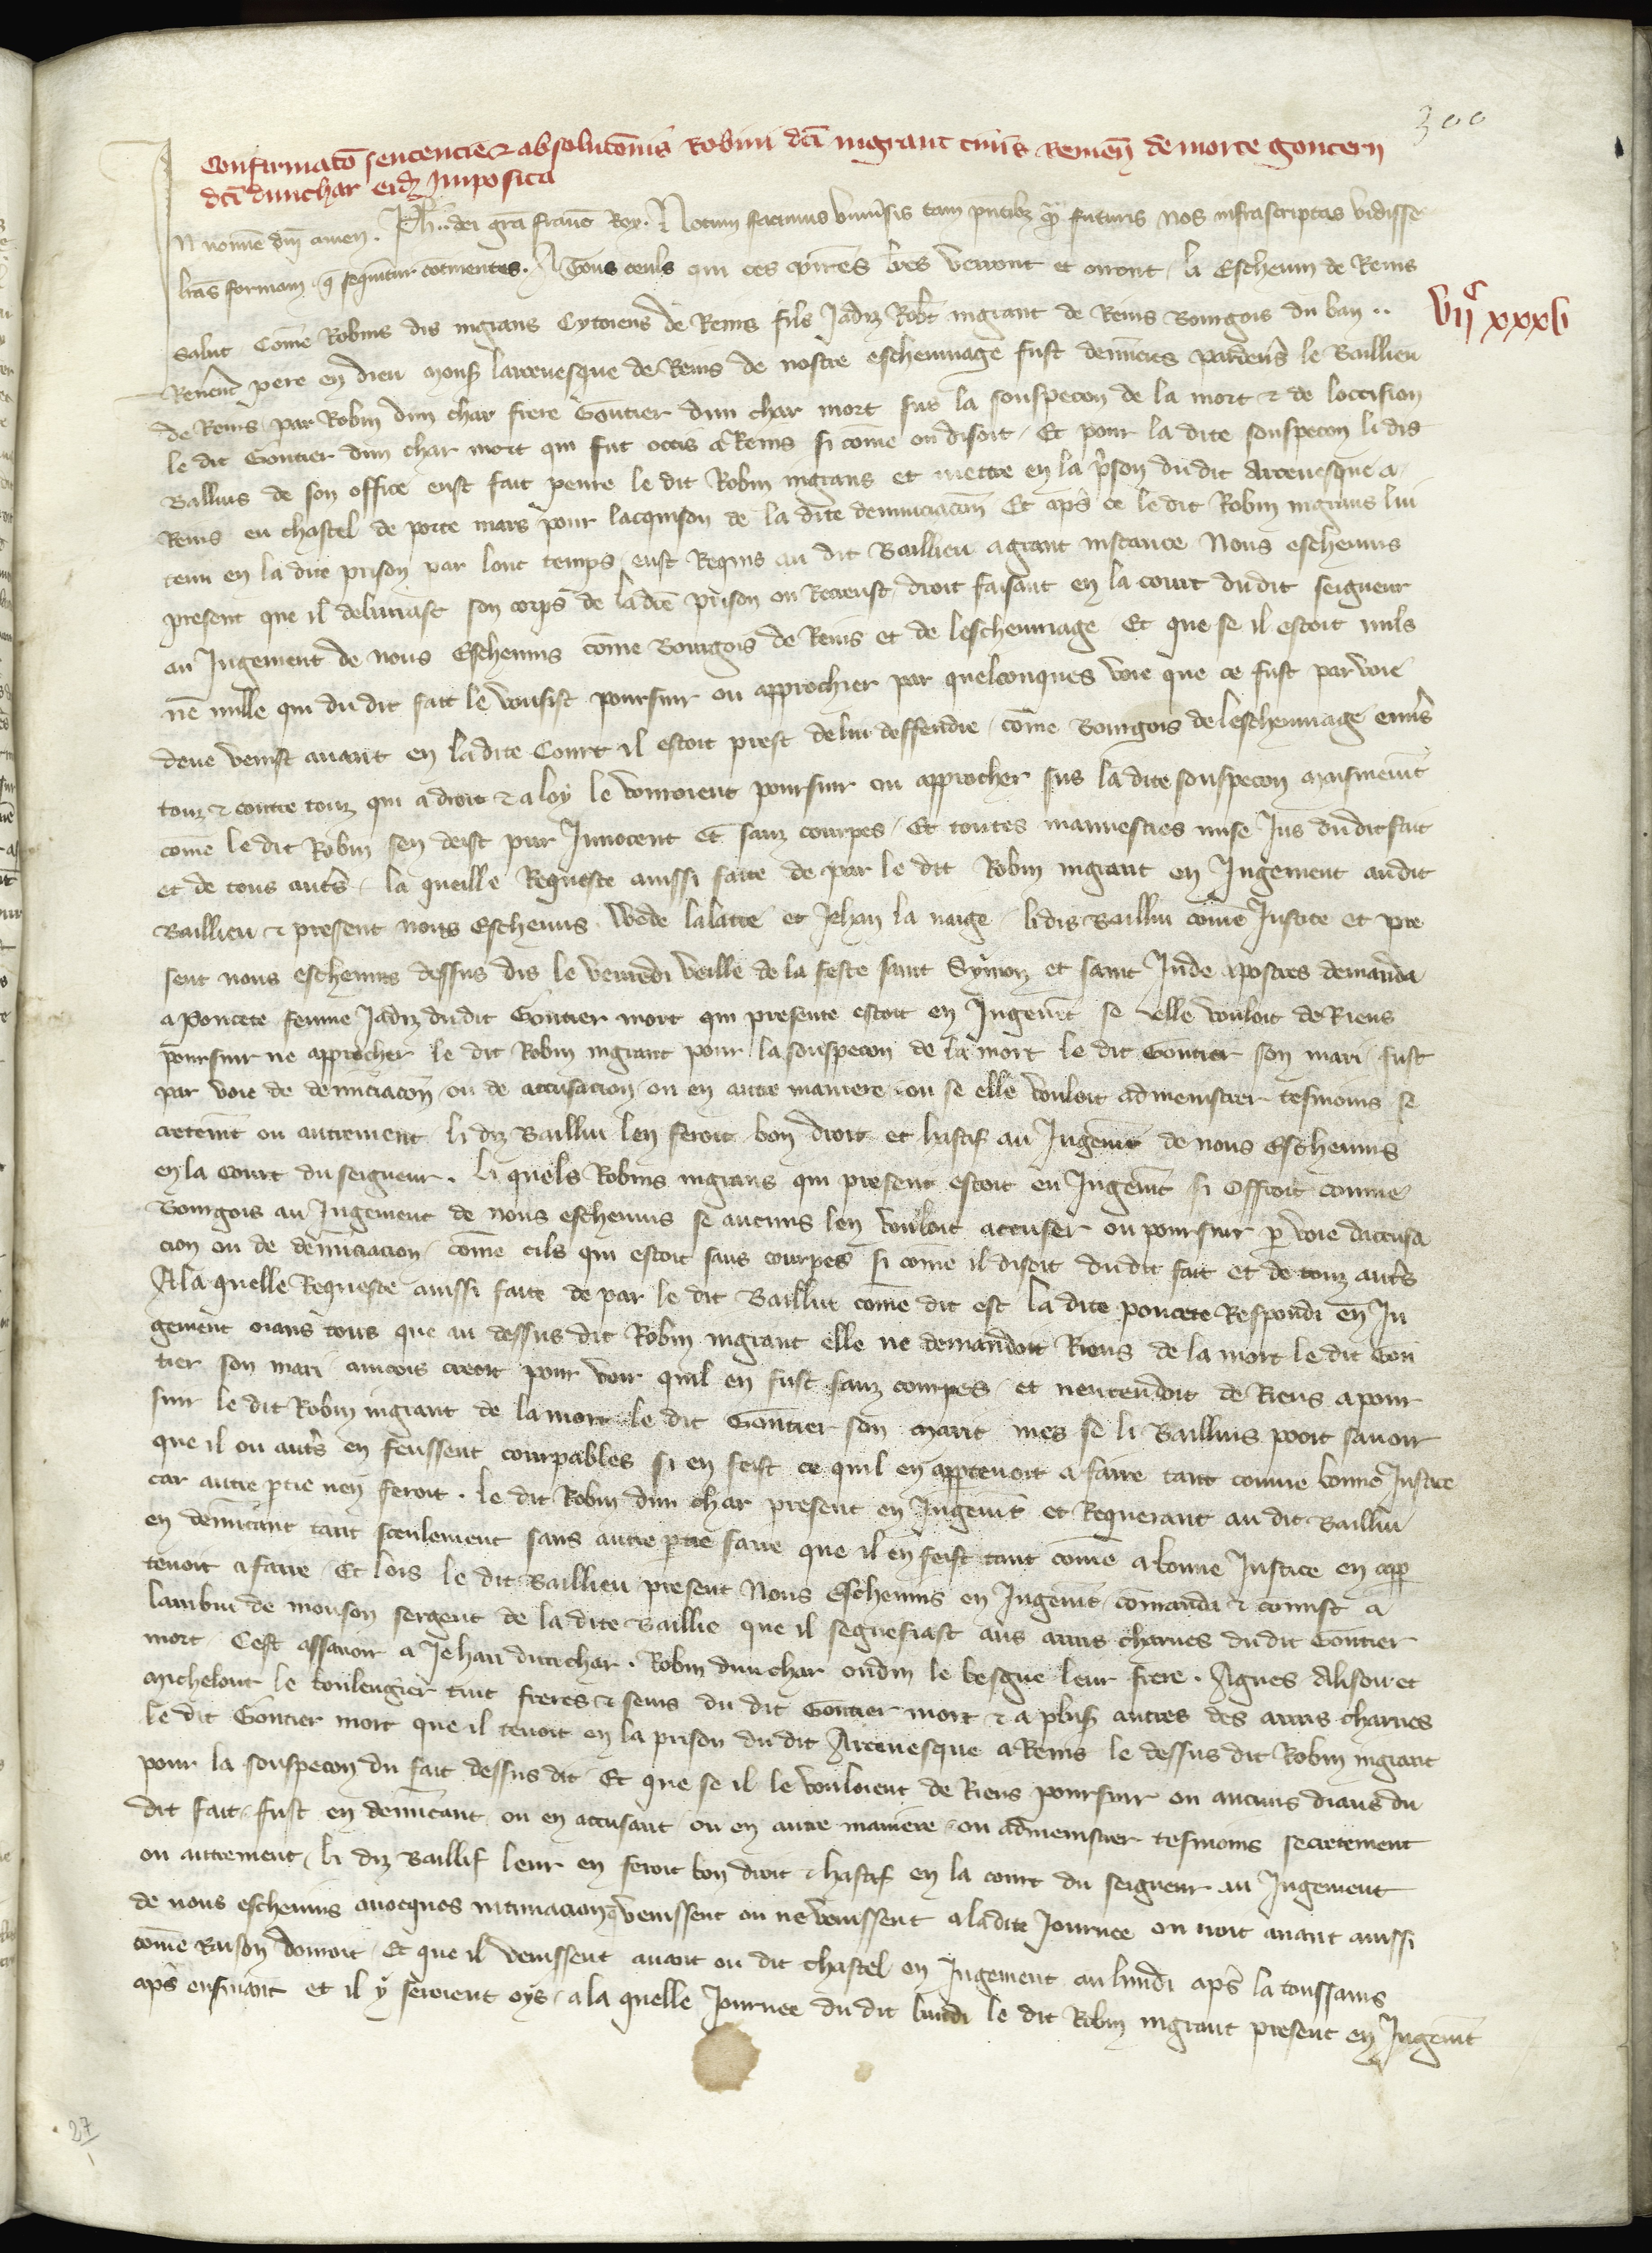 300
Confirmatō sentencie & absolucōnis Robini dc̄i ingrant ciuis Remeñ de morte gonteri
dc̄i dunchar eidȝ Imposita
In nomīe dn̄i amen. Ph̄.. dei gr̄a franc̄ Rex. Notum facimus vniu̓sis tam pn̄tibȝ qȝ futuris nos infrascriptas vidisse
litt̓as formam q̄ sequitur cōtinentes. A Tous ceuls qui ces p̄ntes lr̄es verront et orront li Escheuin de Reins
vijᶜ xxxvi
salut Cōme Robins dis ingrans Cytoiens de Reins fils Jadiz Rob̄t ingrant de Reins Bourgois du ban ..
Reuer̄t pere en dieu mons̓ larceuesque de Reins de nostre escheuinage fust denūcies pardeu̓s le Baillieu
de Reins par Robin dun char frere Gōntier dun char mort sus la souspecon de la mort & de loccision
le dit Gōntier dun char mort qui fut occis a Reins si cōme on disoit. Et pour la dite souspecon li dis
Ballius de son office eust fait penre le dit Robin ingrans et mettre en la p̓son dudit Arceuesque a
Reins en chastel de porte mars pour lacquison de la dite denunciacōn Et ap̓s ce le dit Robin ingrans lui
tenu en la dite prison par lonc temps eust Requis au dit Baillieu a grant instance Nous escheuins
present que il deliurast son corps de la dc̄e prison ou Recreust droit faisant en la court dudit seigneur
au Jugement de nous Escheuins cōme Bourgois de Reins et de lescheuinage Et que se il estoit nuls
ne nulle qui du dit fait le vousist poursuir ou approchier par quelconques voie que ce fust par voie
deue venist auant en ladite Court il estoit prest de lui deffendre cōme Bourgois de lescheuinage enu̓s
touz & contre touz qui a droit & a loy le vorroient poursuir ou approcher sus la dite souspecon maismem̄t
cōme le dit Robin sen deist pur Innocent et sanz courpes Et toutes mauuesties mise Jus dudit fait
et de tous aut̓s. la queille Requeste ainssi faite de par le dit Robin ingrant en Jugement audit
Baillieu & present nous Escheuins Wede lalatte et Jehan la naige. lidis Bailliu cōme Justice et pre
sent nous escheuins dessus dis le venredi veille de la feste saint Symon et saint Jude apostres demanda
a poncete femme Jadiz dudit Gontier mort qui presente estoit en Jugem̄t se elle vouloit de Riens
poursuir ne approcher le dit Robin ingrant pour la souspecon de la mort le dit Gontier son mari fust
par voie de denūciacōn ou de accusacion ou en autre maniere ou se elle vouloit admenistrer tesmoins se
cretem̄t ou autrement li diz Bailliu len feroit bon droit et hastif au Jugem̄t de nous Escheuins
en la court du seigneur. Li quels Robins ingrans qui present estoit en Jugem̄t si offroit comme
Bourgois au Jugement de nous escheuins se aucuns len vouloit accuser ou poursuir p̱ voie daccusa
cion ou de denūciacion cōme cils qui estoit sans courpes si cōme il disoit dudit fait et de touz aut̓s
A la quelle Requeste ainssi faite de par le dit Bailliu cōme dit est la dite poncete Respondi en Ju
gement oians tous que au dessus dit Robin ingrant elle ne demandoit Riens de la mort le dit Gon
tier son mari aincois creoit pour voir quil en fust sanz courpes et nentendoit de Riens a pour
suir le dit Robin ingrant de la mort le dit Gontier son marit mes se li Baillius pooit sauoir
que il ou aut̓s en feussent courpables si en feist ce quil en appartenoit a faire tant comme bonne Justice
car autre p̱tie nen feroit. le dit Robin dun char present en Jugem̄t et Requerant au dit Bailliu
en denūcant tant seulement sans autre p̱tie faire que il en feist tant cōme a bonne Justice en app̱
tenoit a faire Et lors le dit Baillieu present Nous Escheuins en Jugem̄t cōmanda & cōmist a
lambin de mouson sergent de la dite Baillie que il segnefiast aus amis charnes dudit Gontier
mort Cest assauoir a Jehan dunchar. Robin dunchar oudin le besgue leur frere. Agnes Alison et
Michelout le boulengier tuit freres & seurs du dit Gontier mort & a plus̓ autres des amis charnes
le dit Gontier mort que il tenoit en la prison du dit Arceuesque a Reins le dessus dit Robin ingrant
pour la souspecon du fait dessus dit Et que se il le vouloient de Riens poursuir ou aucuns diaus du
dit fait fust en denūcant ou en accusant ou en autre maniere ou admenistrer tesmoins secretement
ou autrement li diz Baillif leur en feroit bon droit & hastif en la court du seigneur au Jugement
de nous escheuins auocques intimacion q̄ venissent ou ne venissent a ladite Journee on iroit auant ainssi
cōme Raison donroit Et que il venissent auant ou dit chastel en Jugement au lundi ap̓s la toussains
ap̓s ensiuant et il y seroient oys. a la quelle Journee du dit lundi le dit Robin ingrant present en Jugem̄t
27